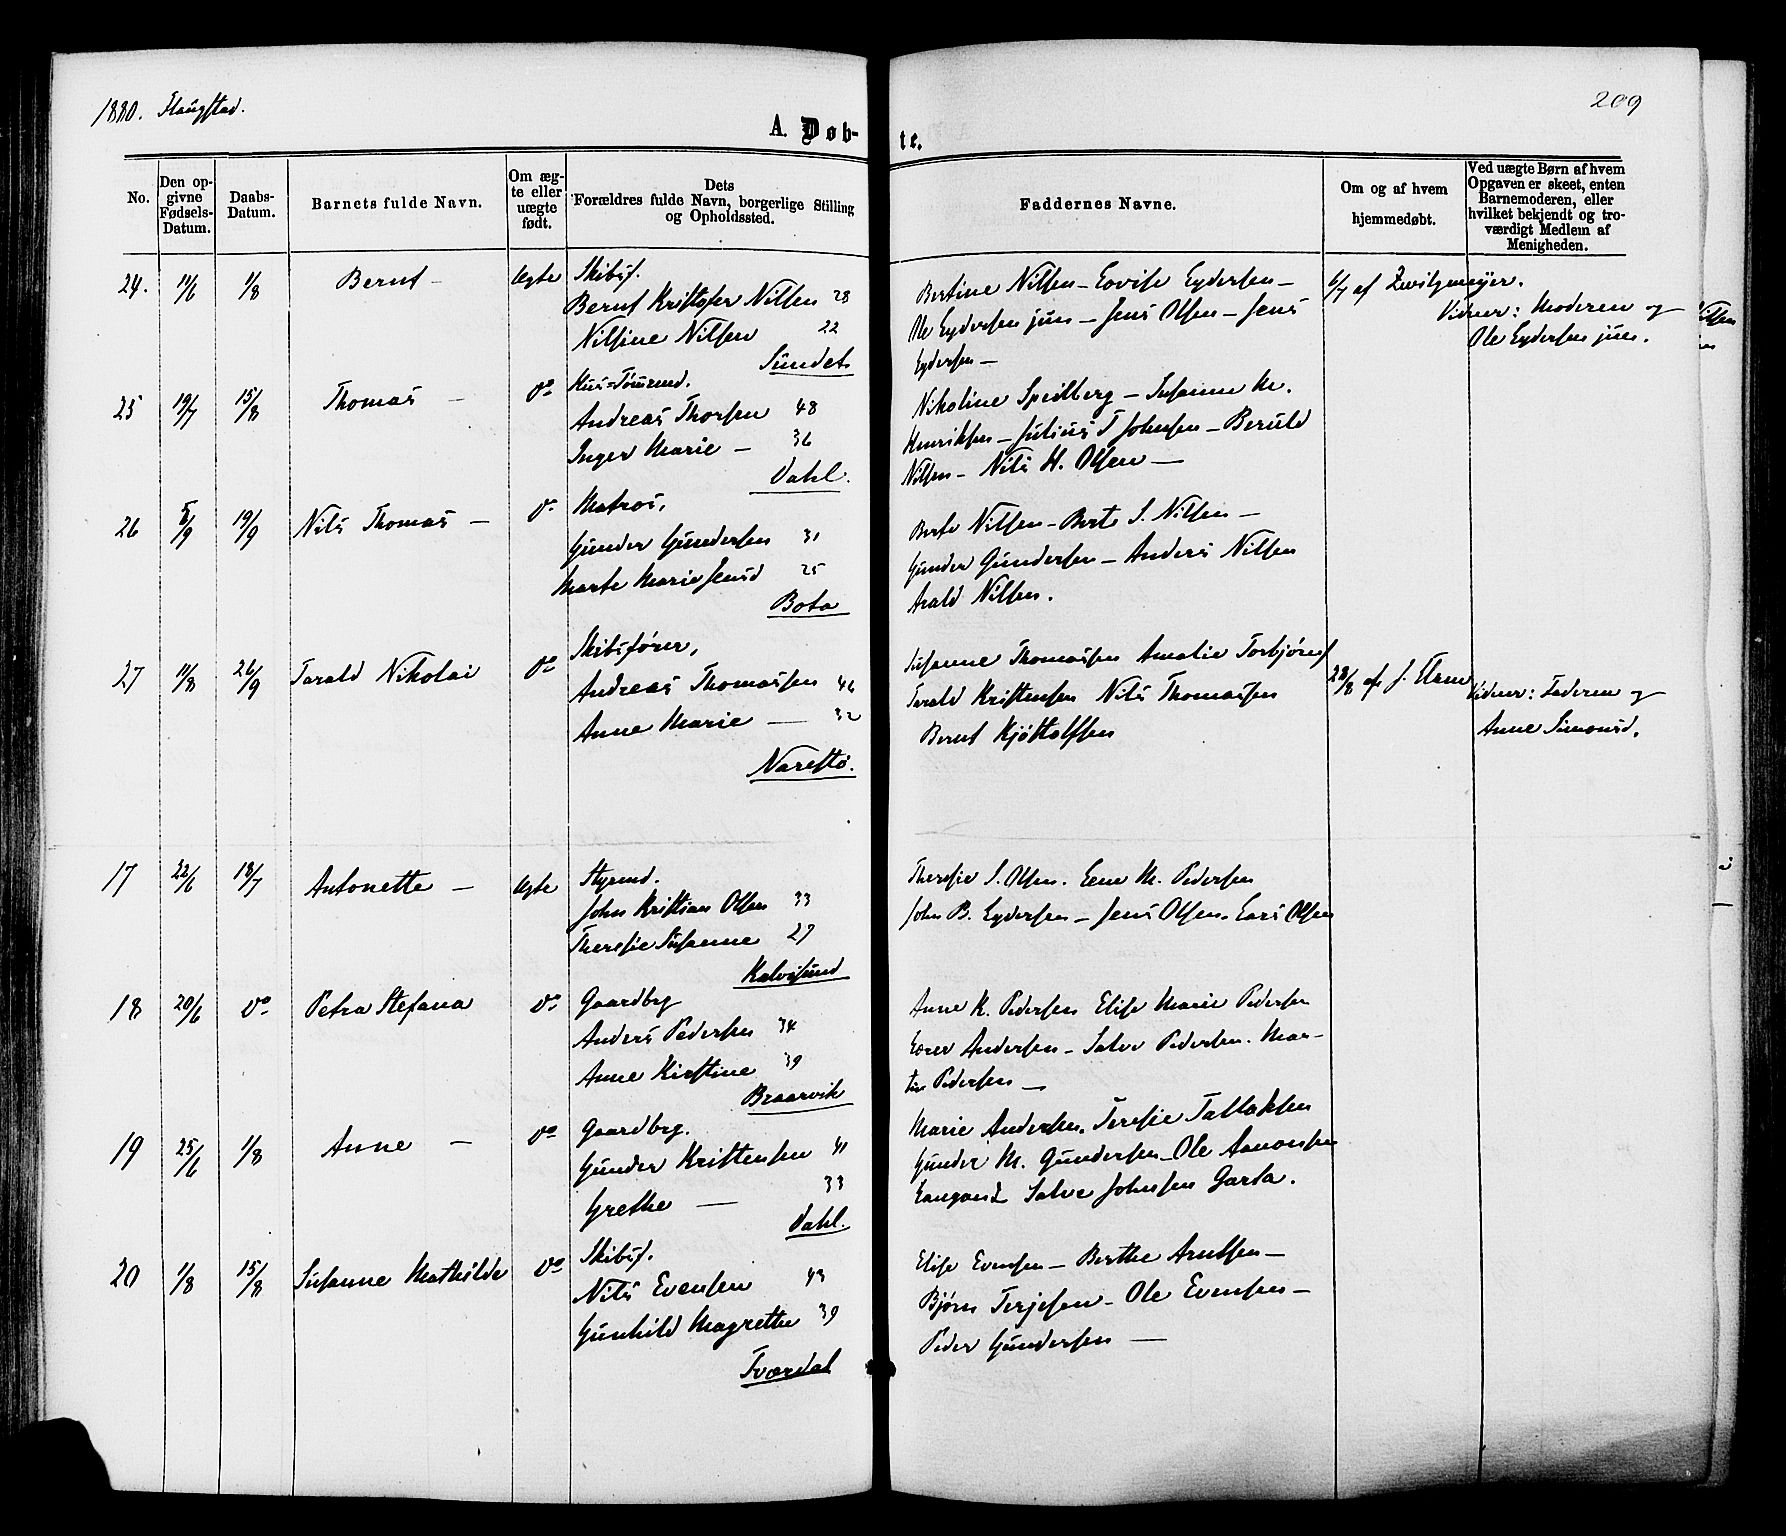 1880. Flangstad.
209
A. Døb-
te.
No.
Den op-
givne
Fødsels-
Datum.
Daabs-
Datum.
Barnets fulde Navn.
Om æg-
te eller
uægte
født.
Dets
Forældres fulde Navn, borgerlige Stilling
og Opholdssted.
Faddernes Navne.
Om og af hvem
hjemmedøbt.
Ved uægte Børn af hvem
Opgaven er skeet, enten
Barnemoderen, eller
hvilket bekjendt og tro-
værdigt Medlem af
Menigheden.
24. 11/6 1/8 Bernt - Ægte Skibsf.
Bernt Kristofer Nilsen 28
Nilsine Nilsen 22
Sundet
Bertine Nilsen - Lovise Eydersen -
Ole Eydersen jun - Jens Olsen - Jens
Eydersen -
6/7 af Zwilgmeyer.
Vidner: Moderen og
Ole Eydersen jun.
25 19/7 15/8 Thomas - do Huus-Tømmd.
Andreas Thorsen 48
Inger Marie - 36
Dahl.
Nikoline Speilberg - Susanne M.
Henriksen - Julius T Johnsen - Beruld
Nilsen - Nils H. Olsen -
26 5/9 19/9 Nils Thomas - do Matros,
Gunder Gundersen 31
Marte Marie Jensd 25
Bota
Berte Nilsen - Berte S. Nilsen -
Gunder Gundersen - Anders Nilsen
Arald Nilsen.
27 11/8 26/9 Tarald Nikolai do Skibsfører,
Andreas Thomassen 46
Anne Marie - 32
Narestø.
Susanne Thomassen Amalie Torbjørns
Tarald Kristensen Nils Thomassen
Bernt Kjøttolfsen
28/8 af J.
Vidner: Faderen og
Anne Simonsd.
17 22/6 18/7 Antonette - Ægte Styrmd.
John Kristian Olsen 33
Theresie Susanne 27
Kalvesund
Theresie S. Olsen. Lene M. Pedersen
John B. Eydersen - Jens Olsen. Lars Olsen
18 20/6 do Petra Stefana do Gaardbr
Anders Pedersen 34
Anne Kirstine 39
Braarvik
Anne K. Pedersen Elise Marie Pedersen
Lorer Andersen - Salve Pedersen. Mar-
tin Pedersen -
19 25/6 1/8 Anne - do Gaardbr.
Gunder Kristensen 41
Grethe - 33
Dahl.
Marie Andersen. Teresie Tallaksen
Gunder M. Gundersen - Ole Aanonsen
Langand Salve Johnsen Garta.
20 1/8 15/8 Susanne Mathilde do Skibsf.
Nils Evensen 43
Gunhild Magrethe 39
Tværdal
Elise Evensen - Berthe Arntsen -
Bjørn Terjesen - Ole Evensen -
Peder Gundersen -